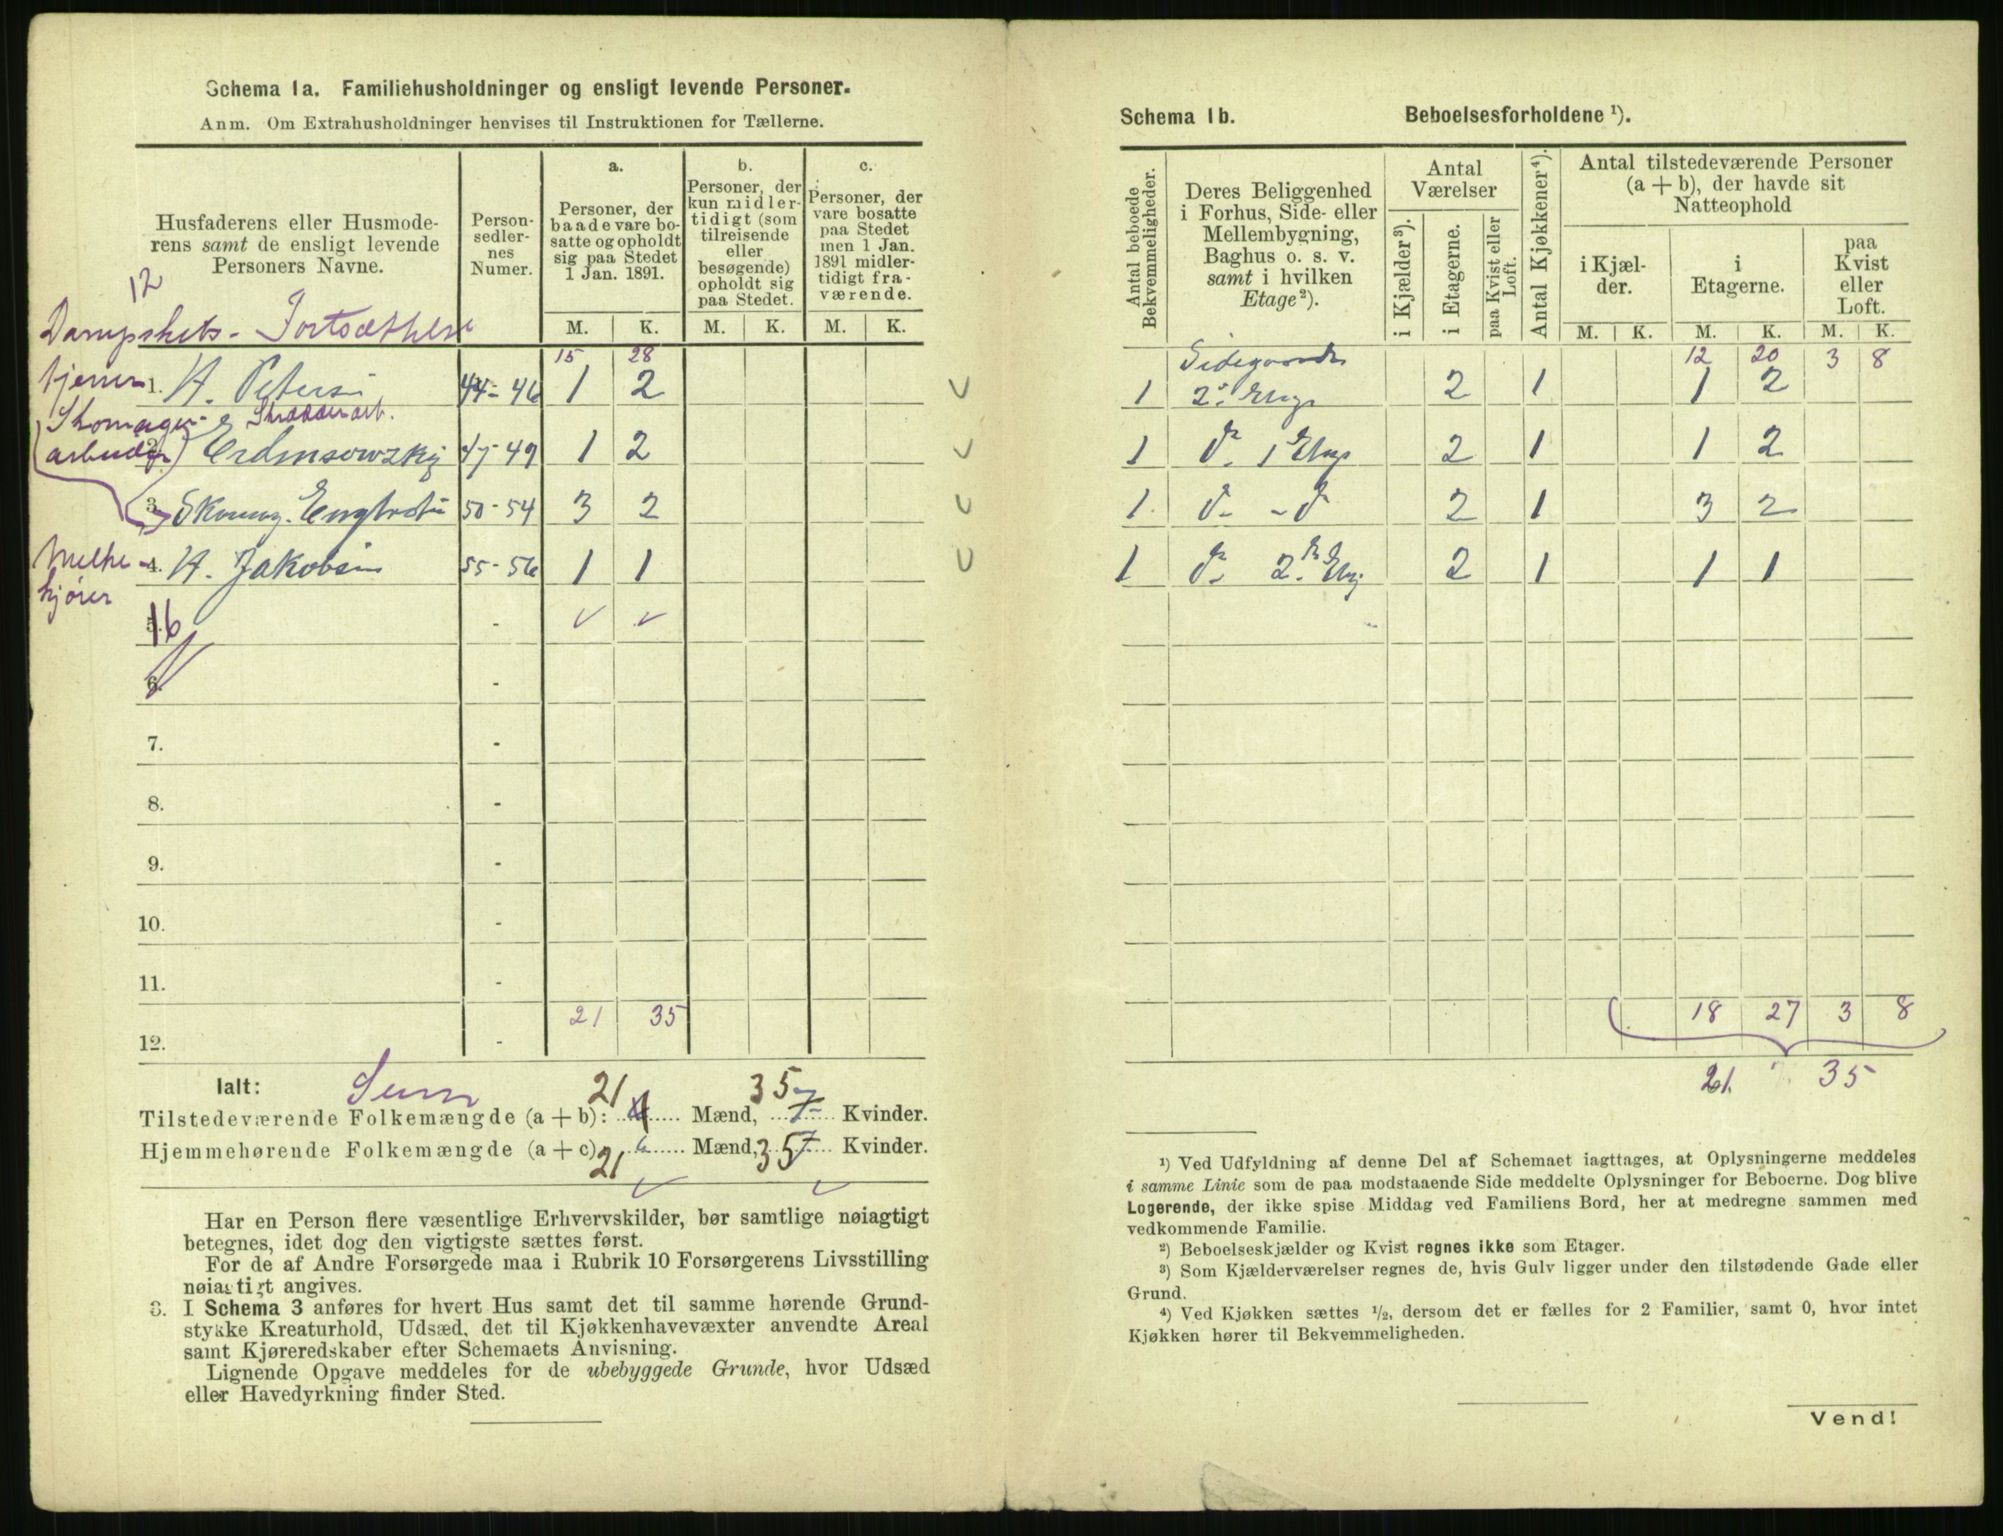 Schema 1a. Familiehusholdninger og ensligt levende Personer.
Anm. Om Extrahusholdninger henvises til Instruktionen for Tællerne.
Husfaderens eller Husmode-
rens samt de ensligt levende
Personers Navne.
Person-
sedler-
nes
Numer.
a.
Personer, der
baade vare bo-
satte og opholdt
sig paa Stedet
1 Jan. 1891.
b.
Personer, der
kun midler-
tidigt (som
tilreisende
eller
besøgende)
opholdt sig
paa Stedet.
c.
Personer, der
vare bosatte
paa Stedet
men 1 Jan.
1891 midler-
tidigt fra-
værende.
M. K. M. K. M. K.
12
Dampskibs- Fortsættelse
15 28
1. H. 44-46 1 2
2. 47-49 1 2
3. 50-54 3 2
Melke-
kjører
4. H. Jakobsen 55-56 1 1
5. -
16
6. -
7. -
8. -
9. -
10. -
11. -
21 35
12. -
Ialt: Sum
Tilstedeværende Folkemængde (a + b): 21 Mænd, 35 7 Kvinder.
Hjemmehørende Folkemængde (a + c) 21 6 Mænd, 35 7 Kvinder.
Har en Person flere væsentlige Erhvervskilder, bør samtlige nøiagtigt
betegnes, idet dog den vigtigste sættes først.
For de af Andre Forsørgede maa i Rubrik 10 Forsørgerens Livsstilling
nøiagtigt angives.
3. I Schema 3 anføres for hvert Hus samt det til samme hørende Grund-
stykke Kreaturhold, Udsæd, det til Kjøkkenhavevæxter anvendte Areal
samt Kjøreredskaber efter Schemaets Anvisning.
Lignende Opgave meddeles for de ubebyggede Grunde, hvor Udsæd
eller Havedyrkning finder Sted.
Schema 1b. Beboelsesforholdene ¹).
Antal beboede
Bekvemmeligheder.
Deres Beliggenhed
i Forhus, Side- eller
Mellembygning,
Baghus o. s. v.
samt i hvilken
Etage ²).
Antal
Værelser
i Kjælder ³).
i Etagerne.
paa Kvist eller
Loft.
Antal Kjøkkener ⁴).
Antal tilstedeværende Personer
(a + b), der havde sit
Natteophold
i Kjæl-
der.
i
Etagerne.
paa
Kvist
eller
Loft.
M. K. M. K. M. K.
12 20 3 8
1 2 1 1 2
1 2 1 1 2
1 2 1 3 2
1 2 1 1 1
18 27 3 8
21. 35
¹) Ved Udfyldning af denne Del af Schemaet iagttages, at Oplysningerne meddeles
i samme Linie som de paa modstaaende Side meddelte Oplysninger for Beboerne. Dog blive
Logerende, der ikke spise Middag ved Familiens Bord, her at medregne sammen med
vedkommende Familie.
²) Beboelseskjælder og Kvist regnes ikke som Etager.
³) Som Kjælderværelser regnes de, hvis Gulv ligger under den tilstødende Gade eller
Grund.
⁴) Ved Kjøkken sættes ½, dersom det er fælles for 2 Familier, samt 0, hvor intet
Kjøkken hører til Bekvemmeligheden.
Vend!